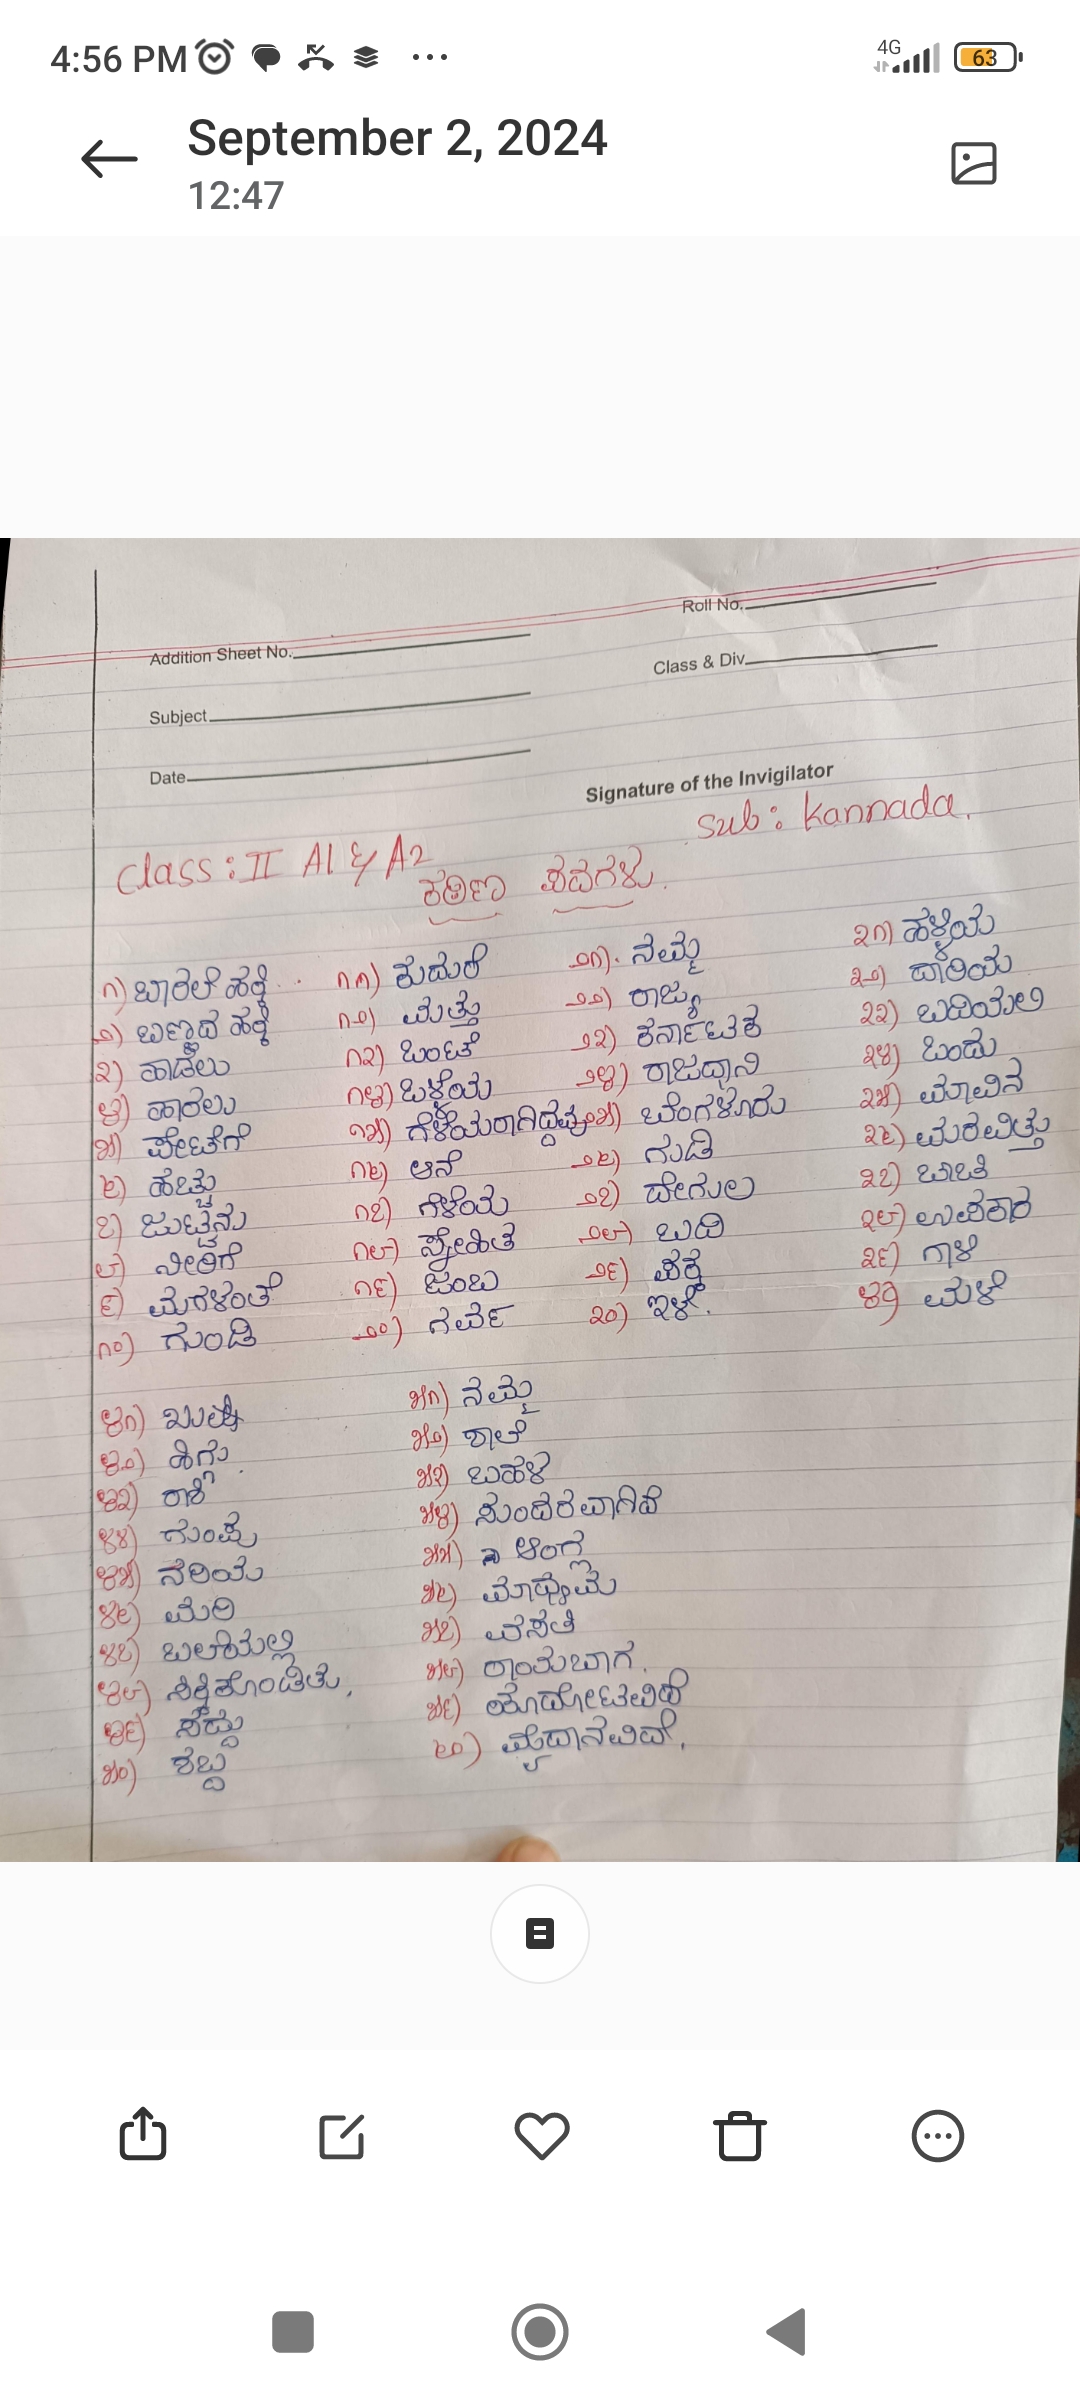 4:56 PM
4G
63
September 2, 2024
12:47
Roll No.
Addition Sheet No.
Class & Div.
Subject
Date
Signature of the Invigilator
Sub: Kannada.
Class: II A1 & A2
ಕಠಿಣ ಪದಗಳು.
೧) ಬಾರಲೆ ಹಕ್ಕಿ ೧೧) ಕುದುರೆ ೨೧). ನಮ್ಮ ೩೧) ಹಳ್ಳಿಯ
೨) ಬಣ್ಣದ ಹಕ್ಕಿ ೧೨) ಮತ್ತು ೨೨) ರಾಜ್ಯ ೩೨) ದಾರಿಯ
೩) ಹಾಡಲು ೧೩) ಒಂಟೆ ೨೩) ಕರ್ನಾಟಕ ೩೩) ಬದಿಯಲಿ
೪) ಹಾರಲು ೧೪) ಒಳ್ಳೆಯ ೨೪) ರಾಜಧಾನಿ ೩೪) ಒಂದು
೫) ಪೇಟೆಗೆ ೧೫) ಗೆಳೆಯರಾಗಿದ್ದವು ೨೫) ಬೆಂಗಳೂರು ೩೫) ಮಾವಿನ
೬) ಹೆಚ್ಚು ೧೬) ಆನೆ ೨೬) ಗುಡಿ ೩೬) ಮರವಿತ್ತು
೭) ಜುಟ್ಟನು ೧೭) ಗೆಳೆಯ ೨೭) ದೇಗುಲ ೩೭) ಚಾಚಿ
೮) ನೀರಿಗೆ ೧೮) ಸ್ನೇಹಿತ ೨೮) ಬದಿ ೩೮) ಉಪಕಾರ
೯) ಮಗಳಂತೆ ೧೯) ಜಂಬ ೨೯) ಪಕ್ಕ ೩೯) ಗಾಳಿ
೧೦) ಗುಂಡಿ ೨೦) ಗರ್ವ ೩೦) ಇಳೆ. ೪೦) ಮಳೆ
೪೧) ಖುಷಿ ೫೧) ನಮ್ಮ
೪೨) ಹಿಗ್ಗು. ೫೨) ಶಾಲೆ
೪೩) ರಾಶಿ ೫೩) ಬಹಳ
೪೪) ಗುಂಪು ೫೪) ಸುಂದರವಾಗಿದೆ
೪೫) ನರಿಯ ೫೫) ಆಂಗ್ಲ
೪೬) ಮರಿ ೫೬) ಮಾಧ್ಯಮ
೪೭) ಬಲೆಯಲ್ಲಿ ೫೭) ವಸತಿ
೪೮) ಸಿಕ್ಕಿಕೊಂಡಿತು. ೫೮) ರಾಯಬಾಗ.
೪೯) ಸದ್ದು ೫೯) ಹೂದೋಟವಿದೆ
೫೦) ಶಬ್ದ ೬೦) ಮೈದಾನವಿದೆ.